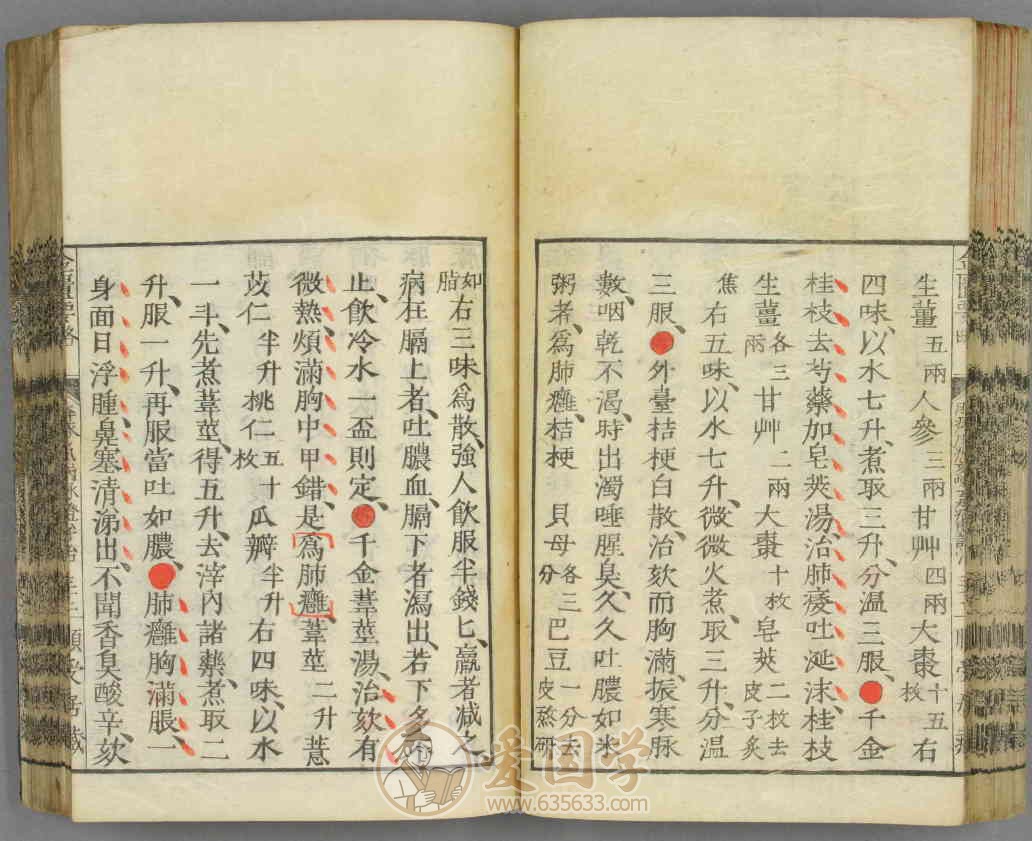 生薑五兩人參三兩甘艸四兩大棗十五枚右
四味、以水七升、煮取三升、分溫三服、千金
桂枝去芍藥加皂莢湯、治肺痿吐涎沫、桂枝
生薑各三兩甘艸二兩大棗十枚皂莢二枚去皮子炙
焦右五味、以水七升、微微火煮、取三升、分溫
三服、外臺桔梗白散、治欬而胸滿、振寒脉
數、咽乾不渴、時出濁唾腥臭、久久吐膿如米
粥者、爲肺癰、桔梗貝母各三分巴豆一分去皮熬研
如脂右三味爲散、強人飲服半錢匕、羸者減之、
病在膈上者、吐膿血、膈下者瀉出、若下多不
止、飲冷水一盃則定、千金葦莖湯、治欬有
微熱煩滿胸中甲錯、是爲肺癰、葦莖二升薏
苡仁半升桃仁五十枚瓜瓣半升右四味、以水
一斗、先煮葦莖、得五升、去滓內諸藥、煮取二
升、服一升、再服當吐如膿、肺癰胸滿脹、一
身面目浮腫、鼻塞清涕出、不聞香臭酸辛、欬
金匱要略
爱国学
www.635633.com